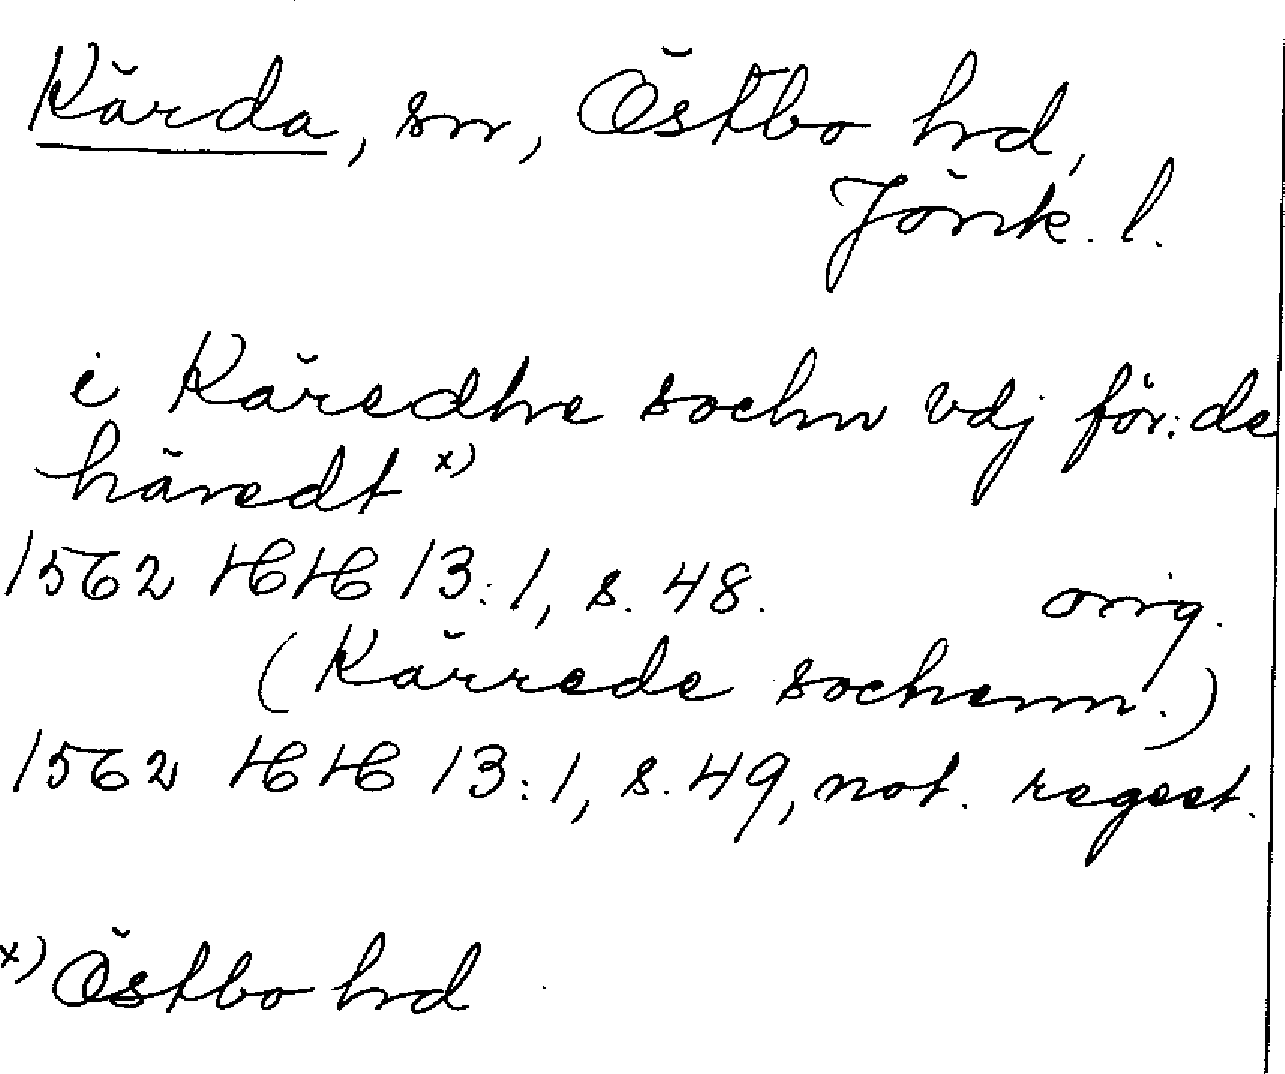 Kärda, sn, Östbo hd,
Jönk. l.
i Käredhe sochn vdj för:de
häredt x)
1562 HH 13:1, s. 48. orig.
(Kärrede sochenn.)
1562 HH 13:1, s. 49, not. regest.
x) Östbo hd